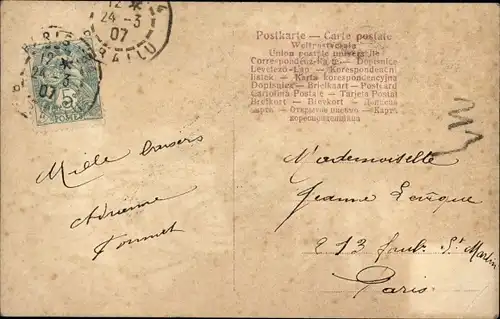 12 *
24-3
07
PARIS
12 *
24 3
07
5
POSTES
Postkarte – Carte postale
Weltpostverein
Union postale universelle
Correspondenz-Karte – Dopisnice
Levelező-Lap – Korespondenční
lístek – Karta korespondencyjna
Dopisnica – Briefkaart – Postcard
Cartolina Postale – Tarjeta Postal
Brefkort – Brevkort –
Открытое письмо –
Mille baisers
Adrienne
Mademoiselle
Jeanne Levêque
213 faub. St Martin
Paris